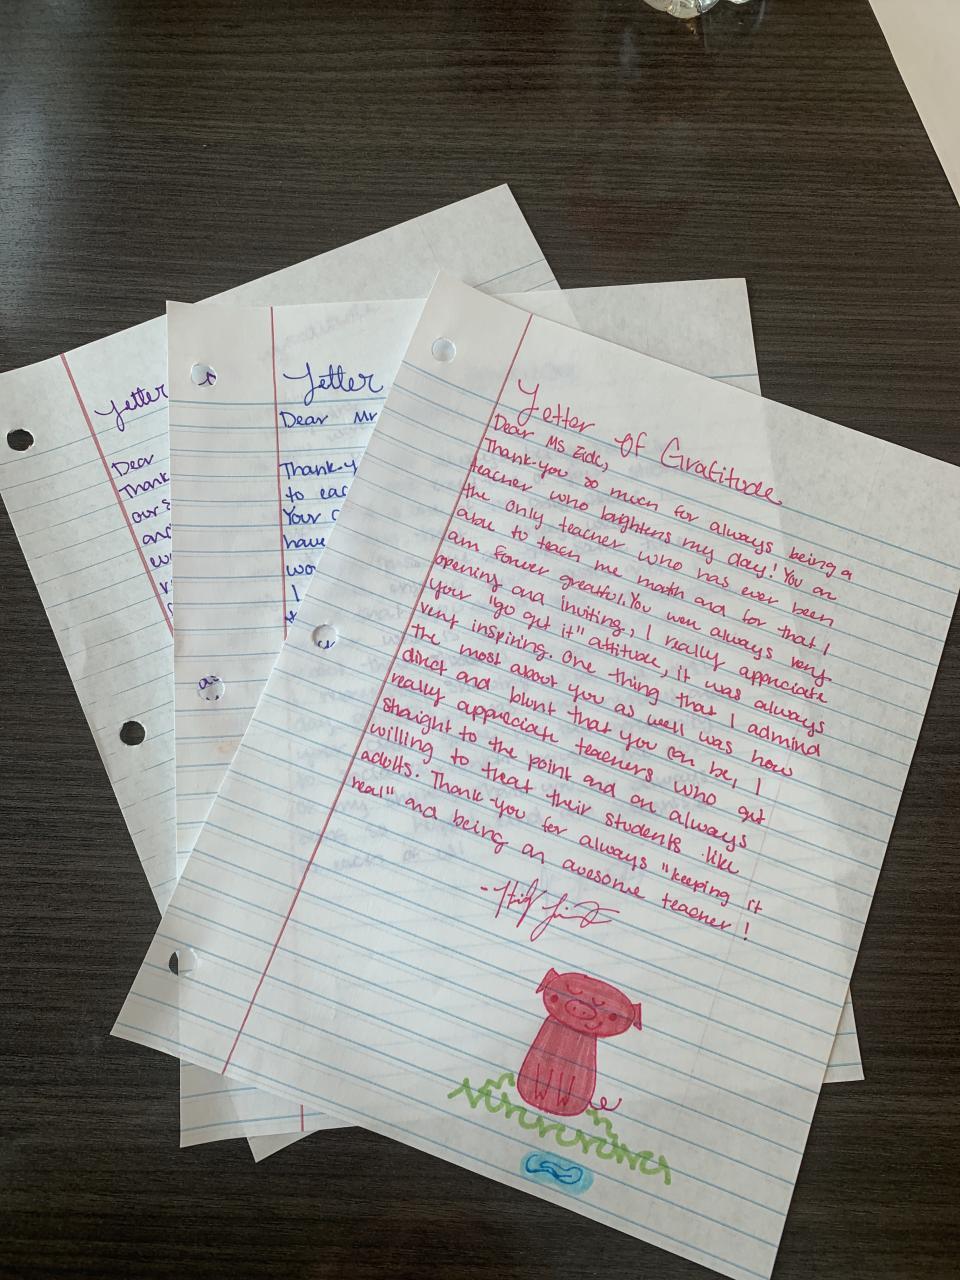 Letter
Dear
Thank
our
and
Letter
Dear Mr
Thank-y
to eac
Your c
have
wo
I
Letter Of Gratitude
Dear Ms Eide,
Thank-you so much for always being a
teacher who brightens my day! You an
the only teacher who has ever been
able to teach me math and for that I
am forever greatful. You wen always very
opening and inviting, I really appreciate
your "go get it" attitude, it was always
very inspiring. One thing that I admind
the most about you as well was how
direct and blunt that you can be, I
really appreciate teachers who get
straight to the point and an always
willing to treat their students like
adults. Thank-you for always "keeping it
real" and being an awesome teacher!